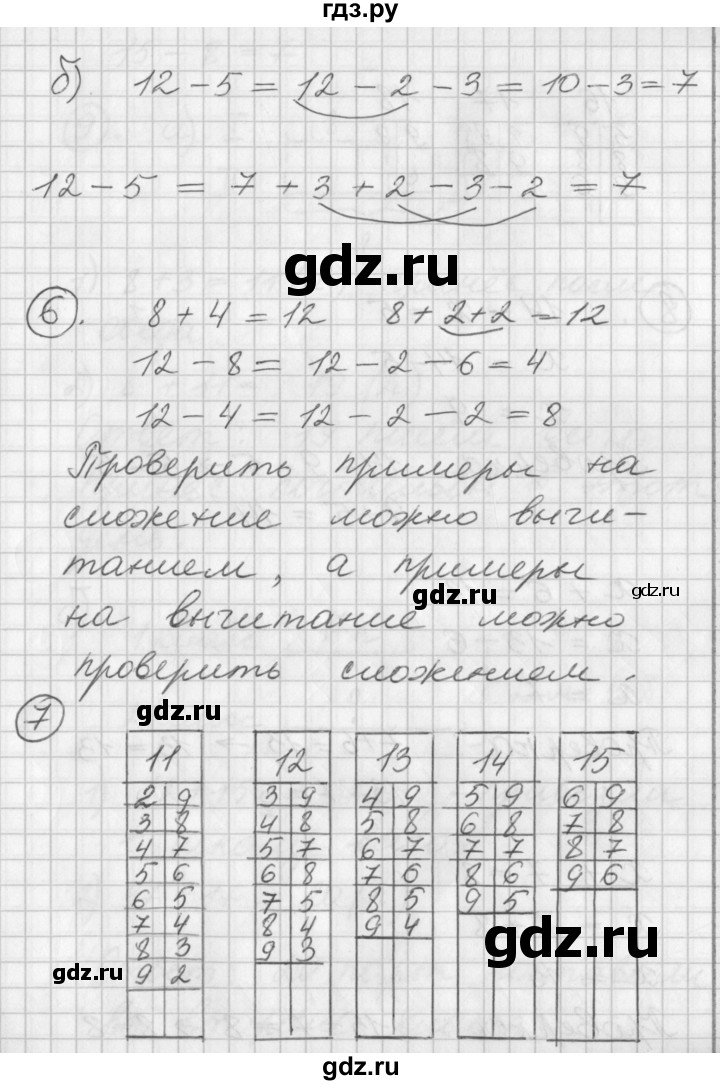 гдз.ру
б) 12 - 5 = 12 - 2 - 3 = 10 - 3 = 7
12 - 5 = 7 + 3 + 2 - 3 - 2 = 7
gdz.ru
6. 8 + 4 = 12 8 + 2 + 2 = 12
12 - 8 = 12 - 2 - 6 = 4
12 - 4 = 12 - 2 - 2 = 8
Проверить примеры на
сложение можно вычи-
танием, а примеры
gdz.ru
gdz.ru
на вычитание можно
проверить сложением.
7
gdz.ru
11 12 13 14 15
2 9 3 9 4 9 5 9 6 9
3 8 4 8 5 8 6 8 7 8
4 7 5 7 6 7 7 7 8 7
5 6 6 8 7 6 8 6 9 6
6 5 7 5 8 5 9 5
7 4 8 4 9 4
8 3 9 3
9 2
gdz.ru
gdz.ru
gdz.ru